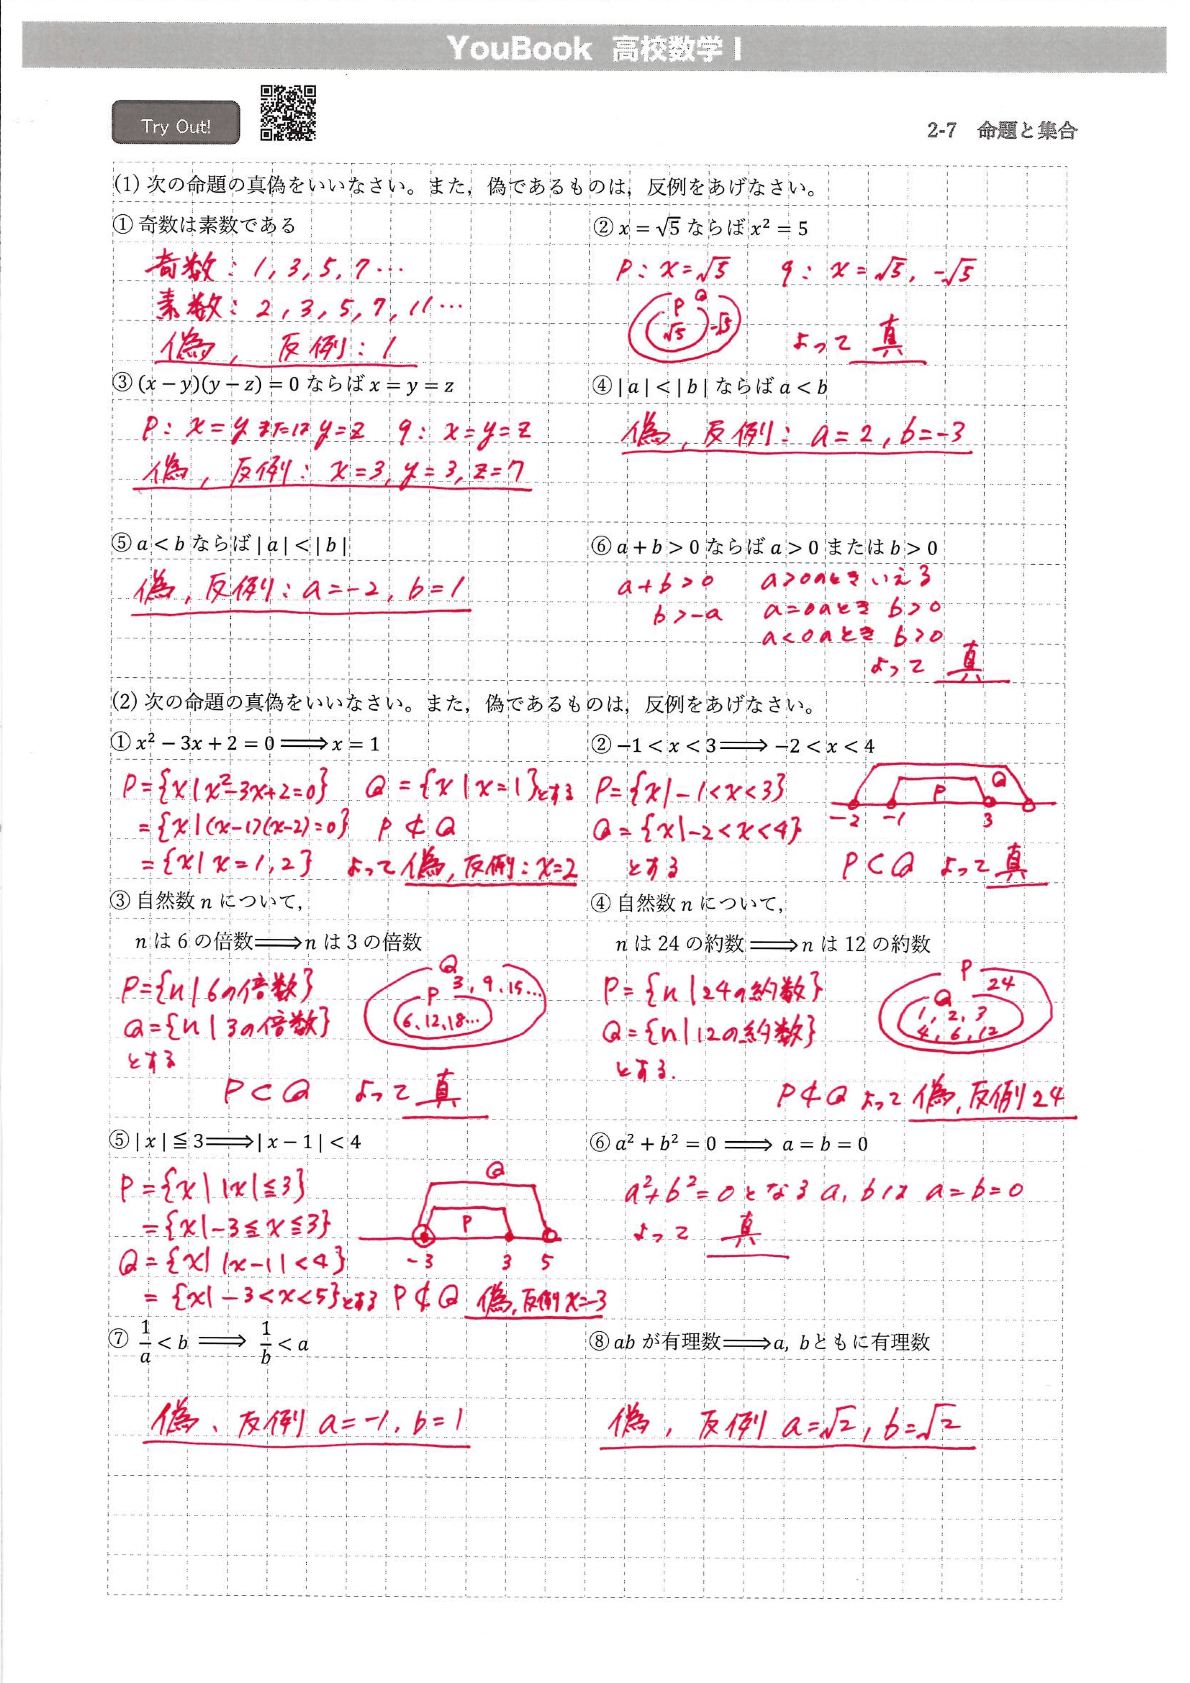 YouBook 高校数学 I
Try Out!
2-7 命題と集合
(1) 次の命題の真偽をいいなさい。また，偽であるものは，反例をあげなさい。
① 奇数は素数である
奇数：1, 3, 5, 7 …
素数：2, 3, 5, 7, 11 …
偽， 反例：1
② x = √5 ならば x² = 5
P: x = √5 q: x = √5, -√5
P Q
√5 -√5
よって 真
③ (x − y)(y − z) = 0 ならば x = y = z
P: x = y または y = z q: x = y = z
偽，反例：x = 3, y = 3, z = 7
④ | a | < | b | ならば a < b
偽，反例：a = 2, b = -3
⑤ a < b ならば | a | < | b |
偽，反例：a = -2, b = 1
⑥ a + b > 0 ならば a > 0 または b > 0
a + b > 0 a > 0のときいえる
b > -a a = 0のとき b > 0
a < 0のとき b > 0
よって 真
(2) 次の命題の真偽をいいなさい。また，偽であるものは，反例をあげなさい。
① x² − 3x + 2 = 0 ⟹ x = 1
P = {x | x² - 3x + 2 = 0} Q = {x | x = 1} とする
= {x | (x-1)(x-2) = 0} P ⊄ Q
= {x | x = 1, 2} よって 偽，反例：x = 2
② −1 < x < 3 ⟹ −2 < x < 4
P = {x | -1 < x < 3}
Q = {x | -2 < x < 4}
とする
P Q
-2 -1 3
P ⊂ Q よって 真
③ 自然数 n について，
n は 6 の倍数 ⟹ n は 3 の倍数
P = {n | 6の倍数}
Q = {n | 3の倍数}
とする
Q
P 3, 9, 15…
6, 12, 18…
P ⊂ Q よって 真
④ 自然数 n について，
n は 24 の約数 ⟹ n は 12 の約数
P = {n | 24の約数}
Q = {n | 12の約数}
とする.
P
Q 24
1, 2, 3
4, 6, 12
P ⊄ Q よって 偽，反例 24
⑤ | x | ≦ 3 ⟹ | x − 1 | < 4
P = {x | |x| ≦ 3}
= {x | -3 ≦ x ≦ 3}
Q = {x | |x-1| < 4}
= {x | -3 < x < 5} とする P ⊄ Q 偽，反例 x = -3
Q
P
-3 3 5
⑥ a² + b² = 0 ⟹ a = b = 0
a² + b² = 0 となる a, b は a = b = 0
よって 真
⑦ 1/a < b ⟹ 1/b < a
偽、反例 a = -1, b = 1
⑧ ab が有理数 ⟹ a, b ともに有理数
偽，反例 a = √2, b = √2